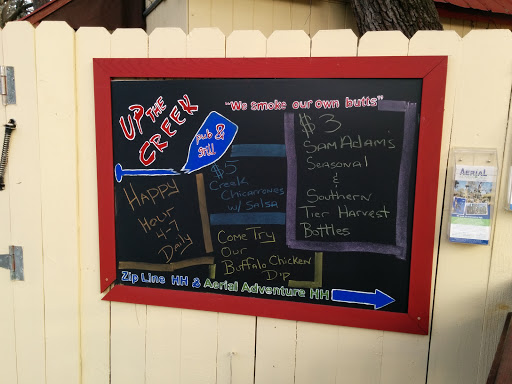 UP THE
CREEK
pub &
grill
"We smoke our own butts"
Happy
Hour
4-7
Daily
$5
Creek
Chicarrones
w/ Salsa
Come Try
Our
Buffalo Chicken
Dip
$3
Sam Adam's
Seasonal
&
Southern
Tier Harvest
Bottles
Zip Line HH & Aerial Adventure HH
AERIAL